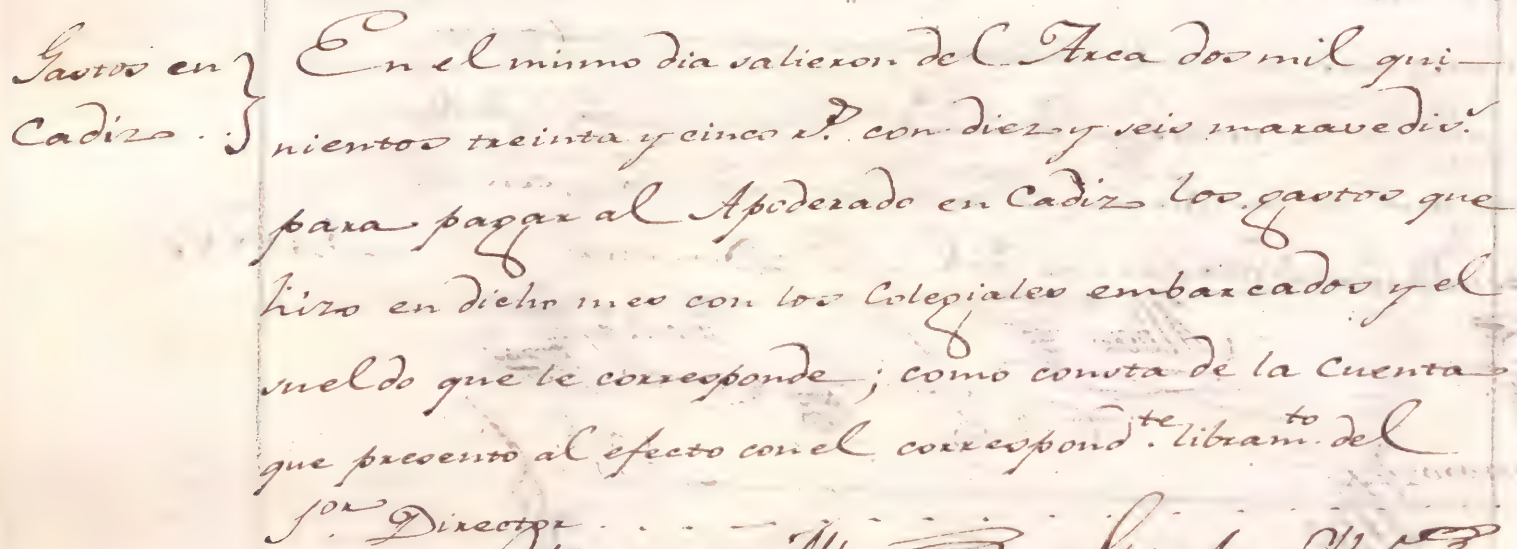 Gastos en
Cadiz . .
En el mismo dia salieron del Arca dos mil qui-
nientos treinta y cinco r.s con diez y seis maravedis.
para pagar al Apoderado en Cadiz los gastos que
hizo en dicho mes con los Colegiales embarcados y el
sueldo que le corresponde; como consta de la Cuenta
que presento al efecto con el correspond.te libram.to del
S.or Director . . . . . . . .